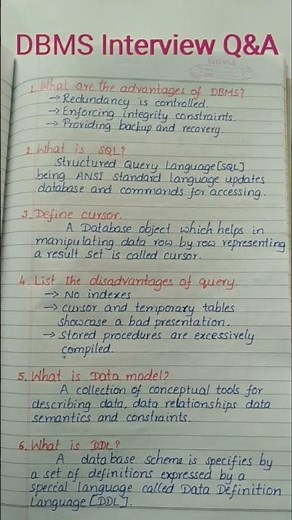 DBMS Interview Q&A
1. What are the advantages of DBMS?
→ Redundancy is controlled.
→ Enforcing integrity constraints.
→ Providing backup and recovery.
2. What is SQL?
Structured Query Language[SQL]
being ANSI standard language updates
database and commands for accessing.
3. Define cursor.
A Database object which helps in
manipulating data row by row representing
a result set is called cursor.
4. List the disadvantages of query.
→ No indexes
→ cursor and temporary tables
showcase a bad presentation.
→ Stored procedures are excessively
compiled.
5. What is Data model?
A collection of conceptual tools for
describing data, data relationships data
semantics and constraints.
6. What is DDL?
A database scheme is specifies by
a set of definitions expressed by a
special language called Data Definition
Language [DDL].